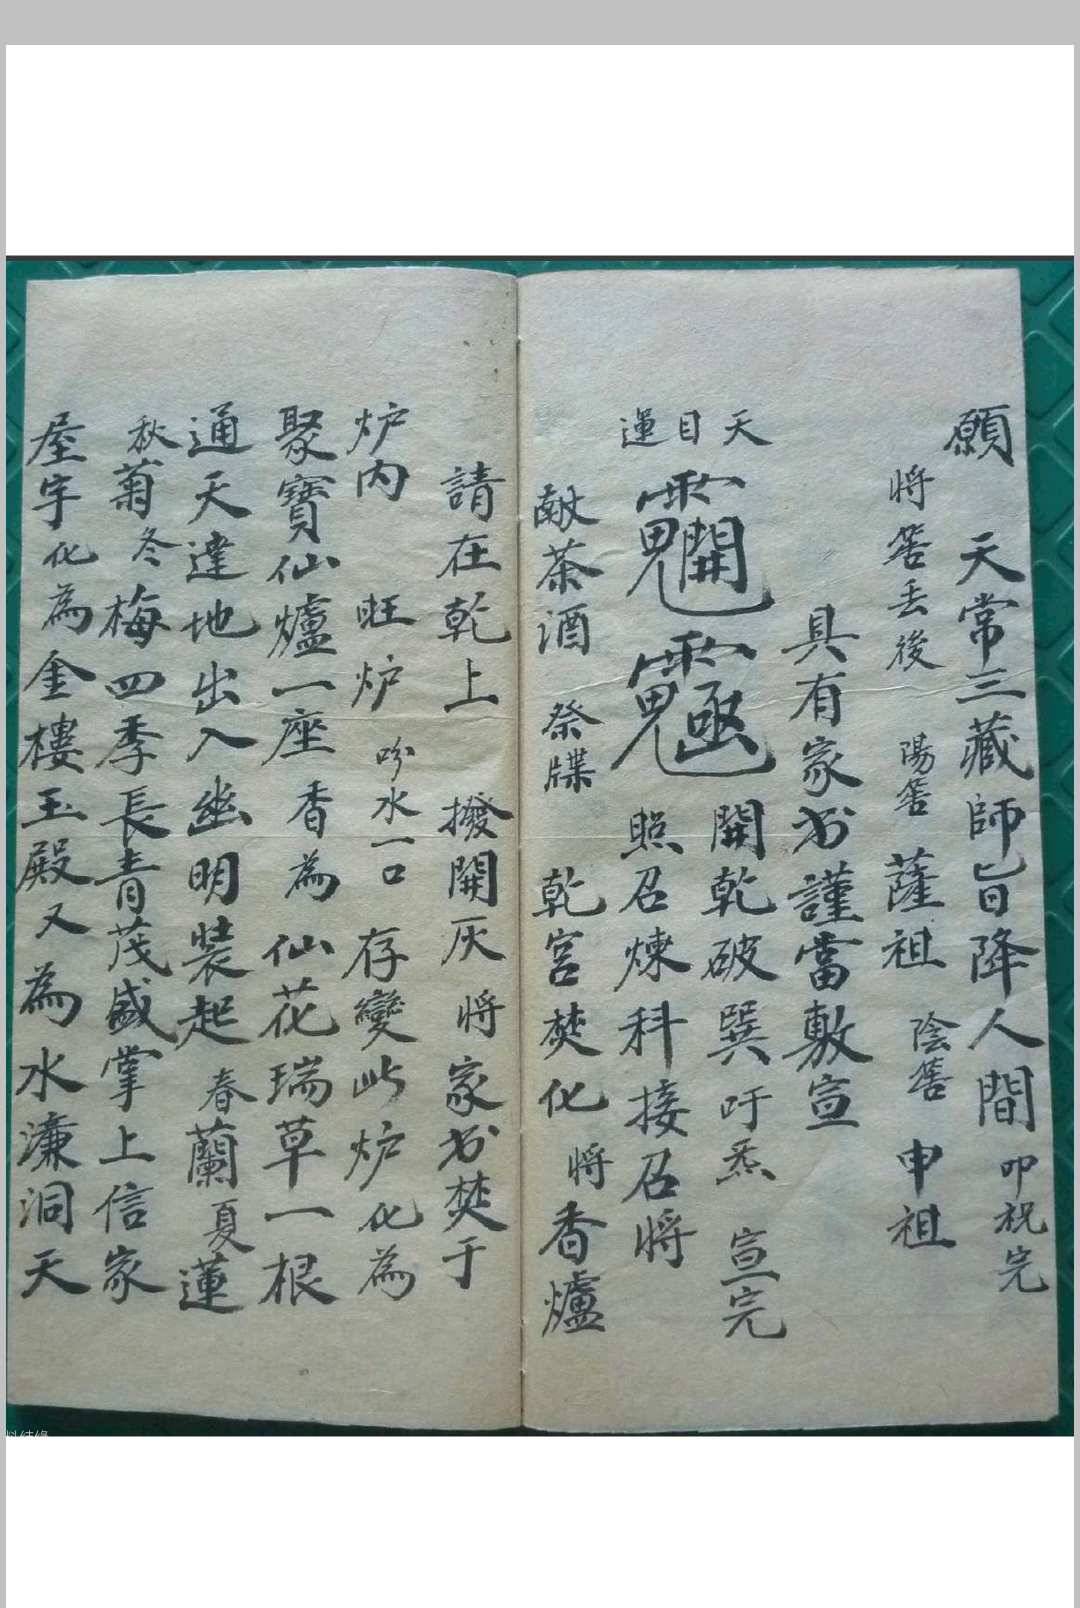 願 天常三藏師旨降人間 叩祝完
将筶丢後 陽筶 薩祖 陰筶 申祖
具有家书謹當敷宣
天 開乾破巽吁炁 宣完
目
運 照召煉科接召將
献茶酒 祭牒 乾宮焚化 将香爐
請在乾上 撥開灰 將家书焚于
炉内 旺炉 吩水一口 存變此炉化為
聚寶仙爐一座 香為 仙花瑞草一根
通天達地出入幽明裝起 春蘭夏蓮
秋菊冬梅四季長青茂盛掌上信家
屋宇化為金樓玉殿又為水濂洞天